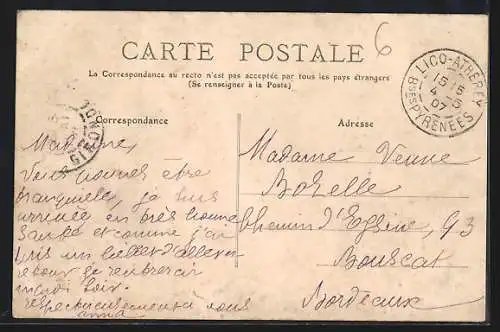 CARTE POSTALE
6
La Correspondance au recto n'est pas acceptée par tous les pays étrangers
(Se renseigner à la Poste)
LICQ-ATHEREY
15 15
4 - 5
07
Bses PYRÉNÉES
Correspondance
Adresse
Madame,
Vous pouvez être
tranquille, je suis
arrivée en très bonne
santé et comme j'ai
pris un billet d'aller
retour je rentrerai
mardi soir.
respectueusement à vous
anna
Madame Veuve
Chemin d'Eglise, 93
Bouscat
Bordeaux